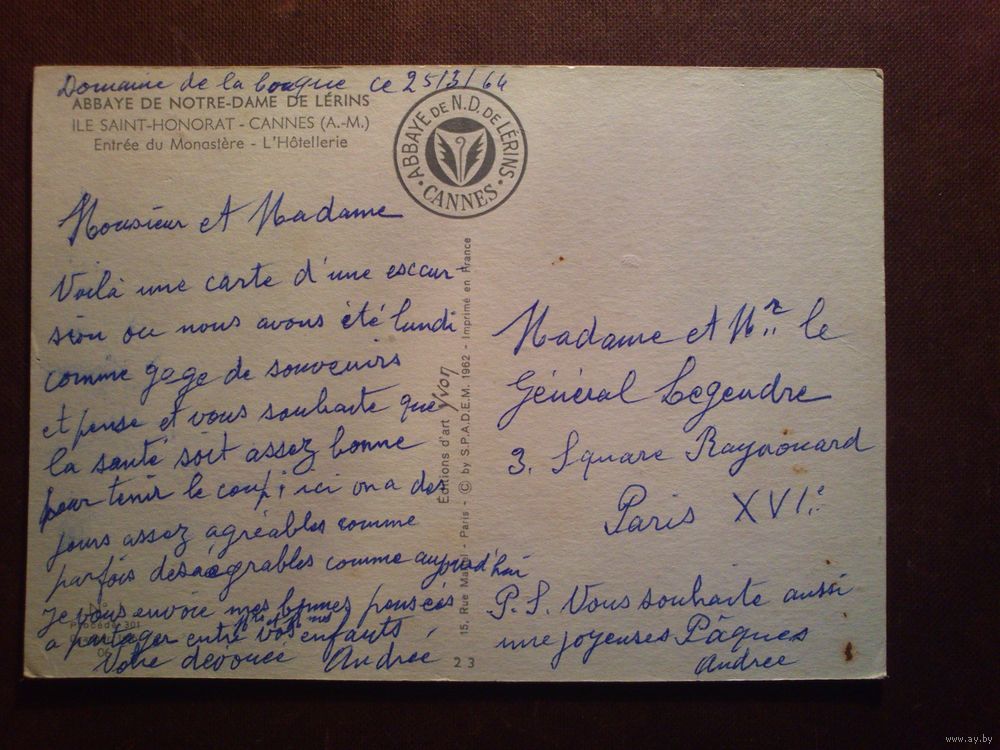 Domaine de la Couque ce 25/3/64
ABBAYE DE NOTRE-DAME DE LÉRINS
ILE SAINT-HONORAT - CANNES (A.-M.)
Entrée du Monastère - L'Hôtellerie
ABBAYE DE N.D. DE LÉRINS
· CANNES ·
Monsieur et Madame
Voilà une carte d'une escur-
sion ou nous avons été lundi
comme gage de souvenirs
et pense et vous souhaite que
la santé soit assez bonne
pour tenir le coup; ici on a des
jours assez agréables comme
parfois desaégrables comme aujourd'hui
je vous envoie mes bonnes pensées
a partager entre vos enfants
Votre dévouée Andrée
Procédé 301
06
Éditions d'art Yvon
15, Rue Martel - Paris - © by S.P.A.D.E.M. 1962 - Imprimé en France
23
Madame et Mr le
Général Legendre
3. Square Raynouard
Paris XVIe
P.S. Vous souhaite aussi
une joyeuses Pâques
Andrée
www.ay.by